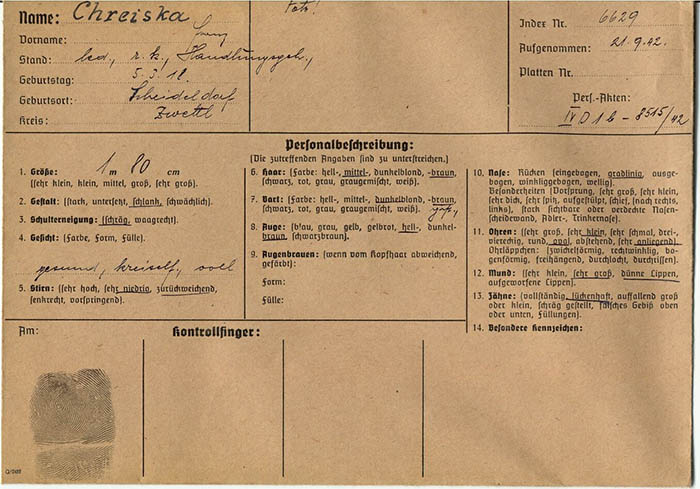 Name: Chreiska
Vorname: Franz
Stand: led., r.k., Handlungsgeh.,
Geburtstag: 5.3.12.
Geburtsort: Scheideldorf
Kreis: Zwettl
Index Nr. 6629
Aufgenommen: 21.9.42.
Platten Nr.
Pers.-Akten:
IV D 1 b - 8515/42
Personalbeschreibung:
(Die zutreffenden Angaben sind zu unterstreichen.)
1. Größe: 1 m 80 cm
(sehr klein, klein, mittel, groß, sehr groß).
2. Gestalt: (stark, untersetzt, schlank, schwächlich).
3. Schulterneigung: (schräg, waagrecht).
4. Gesicht: (Farbe, Form, Fülle).
gesund, voll
5. Stirn: (sehr hoch, sehr niedrig, zurückweichend,
senkrecht, vorspringend).
6. Haar: (Farbe: hell-, mittel-, dunkelblond, -braun,
schwarz, rot, grau, graugemischt, weiß).
7. Bart: (Farbe: hell-, mittel-, dunkelblond, -braun,
schwarz, rot, grau, graugemischt, weiß).
8. Auge: (blau, grau, gelb, gelbrot, hell-, dunkel-
braun, schwarzbraun).
9. Augenbrauen: (wenn vom Kopfhaar abweichend,
gefärbt):
Form:
Fülle:
10. Nase: Rücken (eingebogen, gradlinig, ausge-
bogen, winkliggebogen, wellig).
Besonderheiten (Vorsprung, sehr groß, sehr klein,
sehr dick, sehr spitz, aufgestülpt, schief, (nach rechts,
links), stark sichtbare oder verdeckte Nasen-
scheidewand, Adler-, Trinkernase).
11. Ohren: (sehr groß, sehr klein, sehr schmal, drei-,
viereckig, rund, oval, abstehend, sehr anliegend).
Ohrläppchen: (zwickelförmig, rechtwinklig, bo-
genförmig, freihängend, durchlocht, durchrissen).
12. Mund: (sehr klein, sehr groß, dünne Lippen,
aufgeworfene Lippen).
13. Zähne: (vollständig, lückenhaft, auffallend groß
oder klein, schräg gestellt, falsches Gebiß oben
oder unten, Füllungen).
14. Besondere Kennzeichen:
Am:
Kontrollfinger: